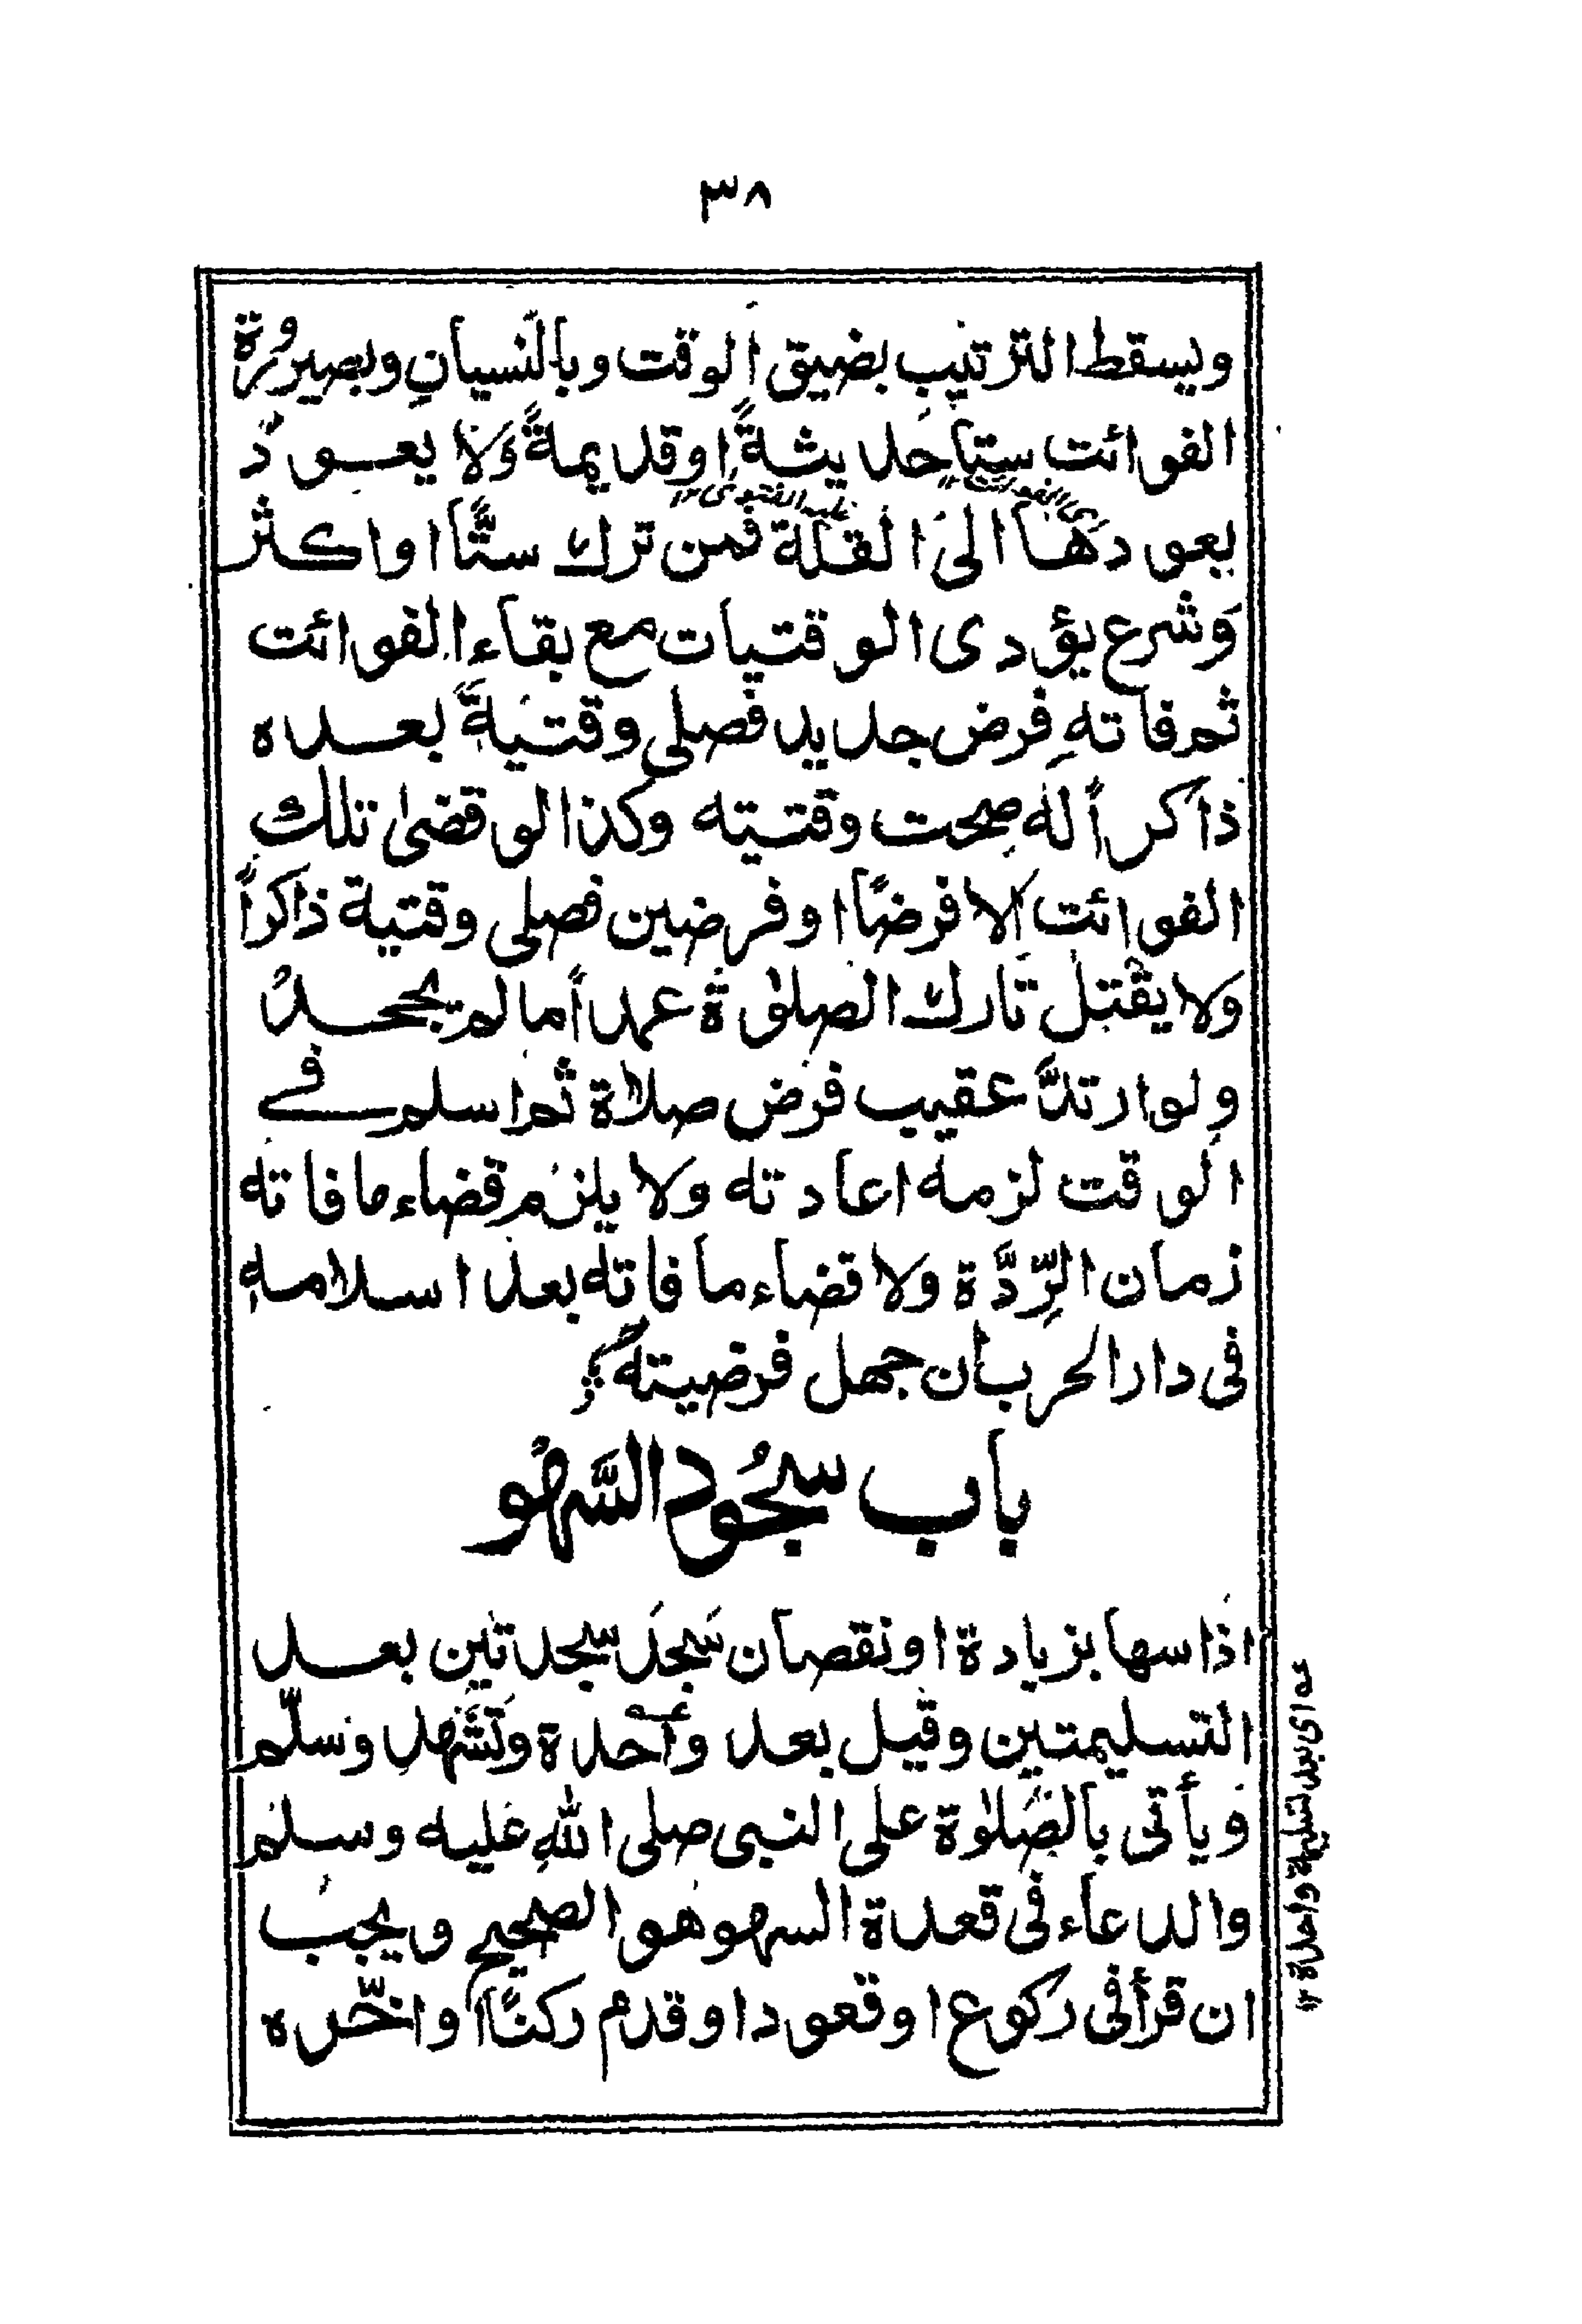 ٣٨
ويسقط الترتيب بضيق الوقت وبالنسيانِ وبصيرورة
الفوائت ستا حديثةً او قديمةً وَلا يعود
بعودهَا الى القلة فمن ترك ستًّا او اكثر
اى الفوائت ١٢ عليه الفتوى ١٢
وَشرع يؤدى الوقتيات مع بقاء الفوائت
ثم فاتهِ فرض جديد فصلى وقتيةً بعده
ذاكراً له صحت وقتيته وكذا لو قضىٰ تلك
الفوائت الا فرضًا او فرضين فصلى وقتية ذاكراً
وَلا يقتل تارك الصلوٰة عمداً ما لم يجحدُ
ولو ارتدَّ عقيب فرض صلاة ثم اسلم فے
الوقت لزمه اعادته ولا يلزم قضاء ما فاته
زمان الرِّدَّة ولا قضاء ما فاته بعد اسلامهٖ
فى دار الحرب ان جهل فرضيته
باب سجُود السَّهْو
اذا سها بزيادة او نقصان سَجدَ سجدتين بعد
التسليمتين وقيل بعد واحدة وتَشَهد وسلّم
ويأتى بالصَّلوٰة على النبى صلى اللّٰه عليه وسلم
والدعاء فى قعدة السهو هو الصحيح ويجب
ان قرأ فى ركوع او قعود او قدم ركنًا او اخّره
عه اى بعد تسليمة واحدة ١٢